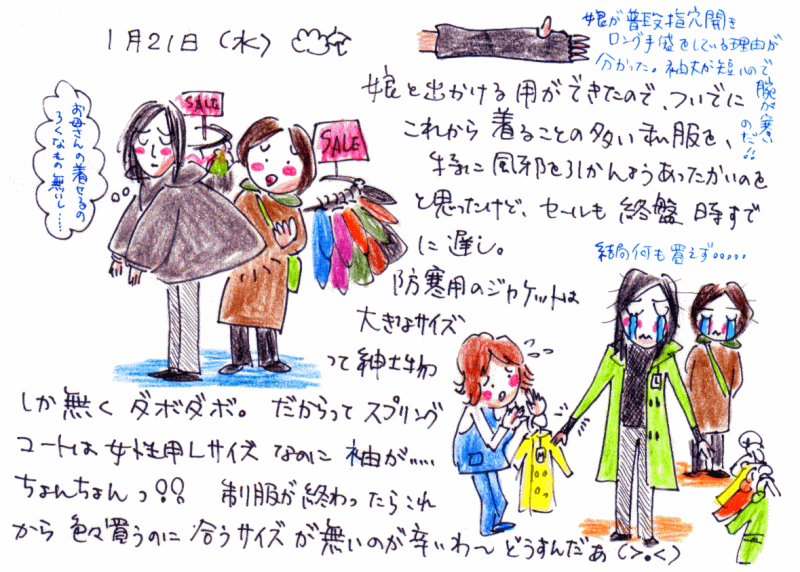 1月21日(水)
娘が普段指穴開き
ロング手袋をしている理由が
分かった。袖丈が短いので
腕が寒い
のだ!!
お母さんの着せるの
ろくなもの無いし……
SALE
SALE
娘と出かける用ができたので、ついでに
これから着ることの多い私服を、
特に風邪を引かんようあったかいのを
と思ったけど、セールも終盤時すで
に遅し。
結局何も買えず・・・・・
防寒用のジャケットは
大きなサイズ
って紳士物
しか無くダボダボ。だからってスプリング
コートは女性用Lサイズなのに袖が……
ちょんちょんっ!! 制服が終わったらこれ
から色々買うのに合うサイズが無いのが辛いわ〜どうすんだぁ(>.<)
L
M